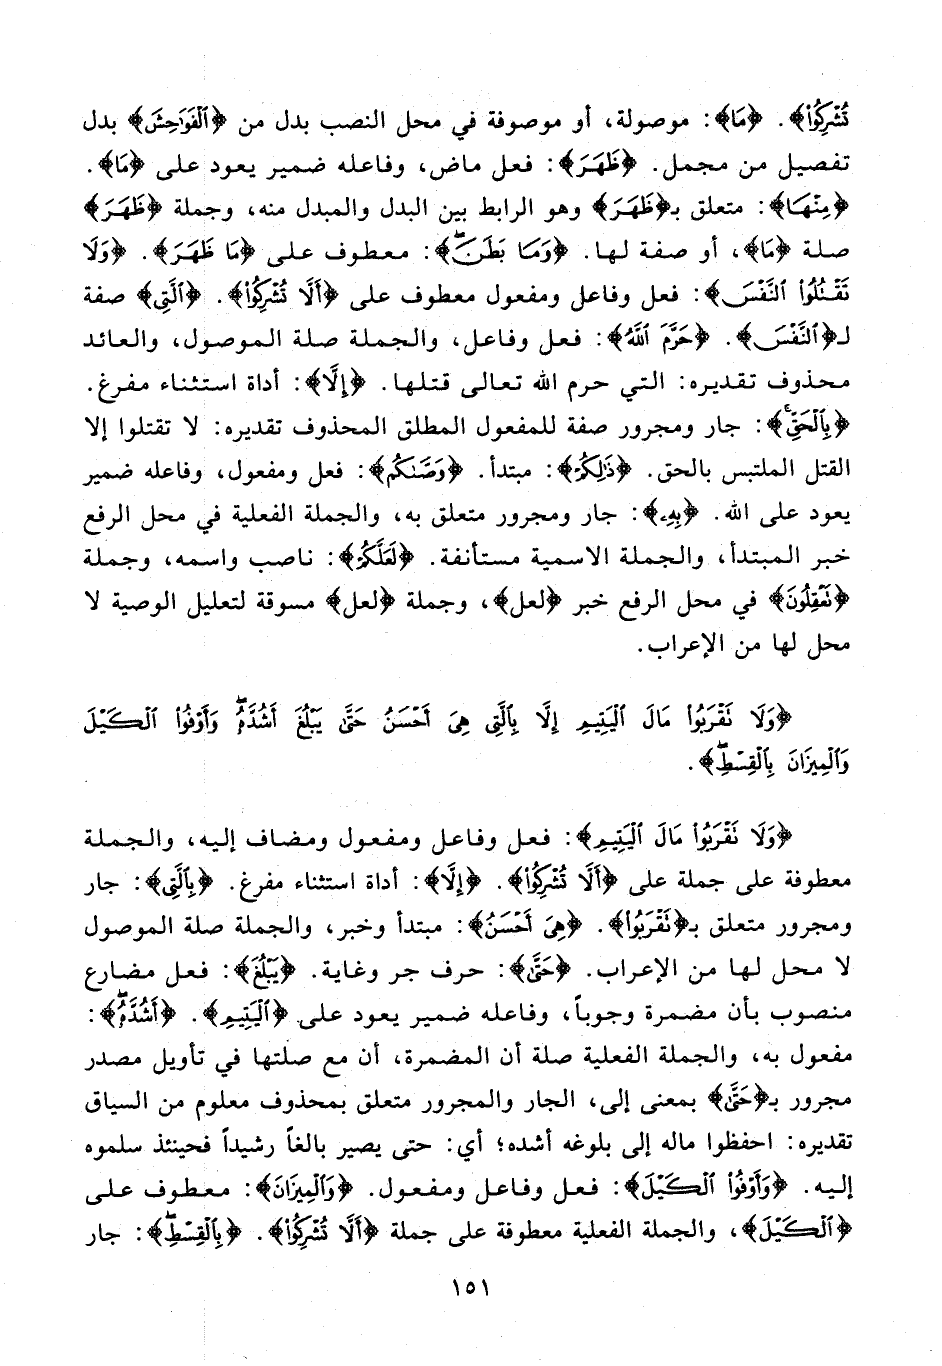 تُشْرِكُوا۟﴾. ﴿مَا﴾: موصولة، أو موصوفة في محل النصب بدل من ﴿ٱلْفَوَٰحِشَ﴾ بدل
تفصيل من مجمل. ﴿ظَهَرَ﴾: فعل ماض، وفاعله ضمير يعود على ﴿مَا﴾.
﴿مِنْهَا﴾: متعلق بـ﴿ظَهَرَ﴾ وهو الرابط بين البدل والمبدل منه، وجملة ﴿ظَهَرَ﴾
صلة ﴿مَا﴾، أو صفة لها. ﴿وَمَا بَطَنَ ۖ﴾: معطوف على ﴿مَا ظَهَرَ﴾. ﴿وَلَا
تَقْتُلُوا۟ ٱلنَّفْسَ﴾: فعل وفاعل ومفعول معطوف على ﴿أَلَّا تُشْرِكُوا۟﴾. ﴿ٱلَّتِى﴾ صفة
لـ﴿ٱلنَّفْسَ﴾. ﴿حَرَّمَ ٱللَّهُ﴾: فعل وفاعل، والجملة صلة الموصول، والعائد
محذوف تقديره: التي حرم الله تعالى قتلها. ﴿إِلَّا﴾: أداة استثناء مفرغ.
﴿بِٱلْحَقِّ ۚ﴾: جار ومجرور صفة للمفعول المطلق المحذوف تقديره: لا تقتلوا إلا
القتل الملتبس بالحق. ﴿ذَٰلِكُمْ﴾: مبتدأ. ﴿وَصَّىٰكُم﴾: فعل ومفعول، وفاعله ضمير
يعود على الله. ﴿بِهِۦ﴾: جار ومجرور متعلق به، والجملة الفعلية في محل الرفع
خبر المبتدأ، والجملة الاسمية مستأنفة. ﴿لَعَلَّكُمْ﴾: ناصب واسمه، وجملة
﴿تَعْقِلُونَ﴾ في محل الرفع خبر ﴿لعل﴾، وجملة ﴿لعل﴾ مسوقة لتعليل الوصية لا
محل لها من الإعراب.
﴿وَلَا تَقْرَبُوا۟ مَالَ ٱلْيَتِيمِ إِلَّا بِٱلَّتِى هِىَ أَحْسَنُ حَتَّىٰ يَبْلُغَ أَشُدَّهُۥ ۖ وَأَوْفُوا۟ ٱلْكَيْلَ
وَٱلْمِيزَانَ بِٱلْقِسْطِ ۖ﴾.
﴿وَلَا تَقْرَبُوا۟ مَالَ ٱلْيَتِيمِ﴾: فعل وفاعل ومفعول ومضاف إليه، والجملة
معطوفة على جملة على ﴿أَلَّا تُشْرِكُوا۟﴾. ﴿إِلَّا﴾: أداة استثناء مفرغ. ﴿بِٱلَّتِى﴾: جار
ومجرور متعلق بـ﴿تَقْرَبُوا۟﴾. ﴿هِىَ أَحْسَنُ﴾: مبتدأ وخبر، والجملة صلة الموصول
لا محل لها من الإعراب. ﴿حَتَّىٰ﴾: حرف جر وغاية. ﴿يَبْلُغَ﴾: فعل مضارع
منصوب بأن مضمرة وجوباً، وفاعله ضمير يعود على ﴿ٱلْيَتِيمِ﴾. ﴿أَشُدَّهُۥ ۖ﴾:
مفعول به، والجملة الفعلية صلة أن المضمرة، أن مع صلتها في تأويل مصدر
مجرور بـ﴿حَتَّىٰ﴾ بمعنى إلى، الجار والمجرور متعلق بمحذوف معلوم من السياق
تقديره: احفظوا ماله إلى بلوغه أشده؛ أي: حتى يصير بالغاً رشيداً فحينئذ سلموه
إليه. ﴿وَأَوْفُوا۟ ٱلْكَيْلَ﴾: فعل وفاعل ومفعول. ﴿وَٱلْمِيزَانَ﴾: معطوف على
﴿ٱلْكَيْلَ﴾، والجملة الفعلية معطوفة على جملة ﴿أَلَّا تُشْرِكُوا۟﴾. ﴿بِٱلْقِسْطِ ۖ﴾: جار
١٥١